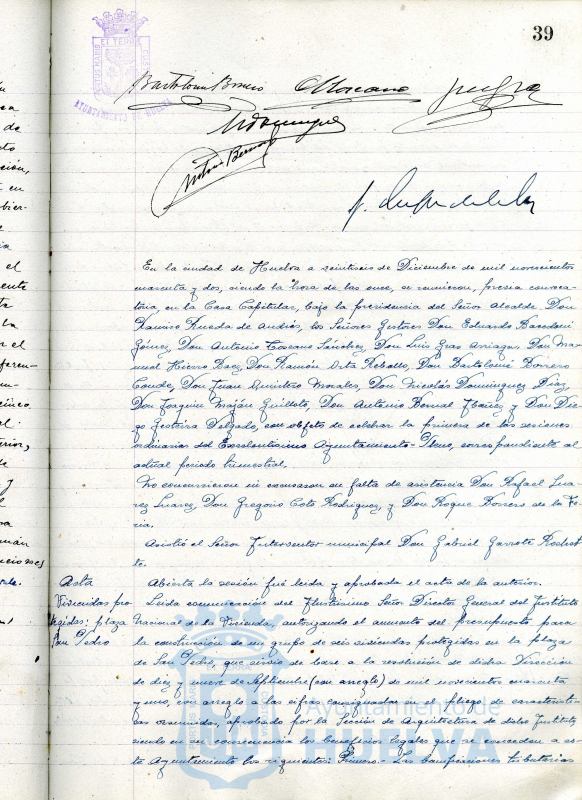 39
AYUNTAMIENTO DE HUELVA
Bartolomé Borrero
En la ciudad de Huelva a veintiseis de Diciembre de mil novecientos
cuarenta y dos, siendo la hora de las once, se reunieron, previa convoca-
toria, en la Casa Capitular, bajo la presidencia del Señor Alcalde Don
Ramiro Rueda de Andrés, los Señores Gestores Don Eduardo
Gómez, Don Antonio Toscano Sánchez, Don Luis Gras Arriagas, Don Ma-
nuel Hierro Baez, Don Ramón Orta Rebollo, Don Bartolomé Borrero
Conde, Don Juan Quintero Morales, Don Nicolás Dominguez Diaz,
Don Joaquin Moján Guilloto, Don Antonio Bernal y Don Die-
go Delgado, con objeto de celebrar la primera de las sesiones
ordinarias del Excelentisimo Ayuntamiento-Pleno, correspondiente al
actual periodo trimestral.
No concurrieron ni excusaron su falta de asistencia Don Rafael Sua-
rez Suarez, Don Gregorio Coto Rodriguez, y Don Roque Borrero de la Fe-
ria.
Asistió el Señor Interventor municipal Don Gabriel Garrote
te.
Acta Abierta la sesión fué leida y aprobada el acta de la anterior.
Viviendas pro Leida comunicación del Ilustrisimo Señor Director General del Instituto
tegidas: plaza Nacional de la Vivienda, autorizando el aumento del presupuesto para
San Pedro la construcción de un grupo de seis viviendas protegidas en la plaza
de San Pedro, que sirvió de base a la resolución de dicha Dirección
de diez y nueve de Septiembre (con arreglo) de mil novecientos cuarenta
y uno, con arreglo a las cifras consignadas en el pliego de caracteristi-
cas resumidas, aprobado por la Sección de Arquitectura de dicho Instituto,
siendo en su consecuencia los beneficios legales que se conceden a es-
te Ayuntamiento los siguientes: Primero.- Las bonificaciones tributarias
Ayuntamiento de
HUELVA